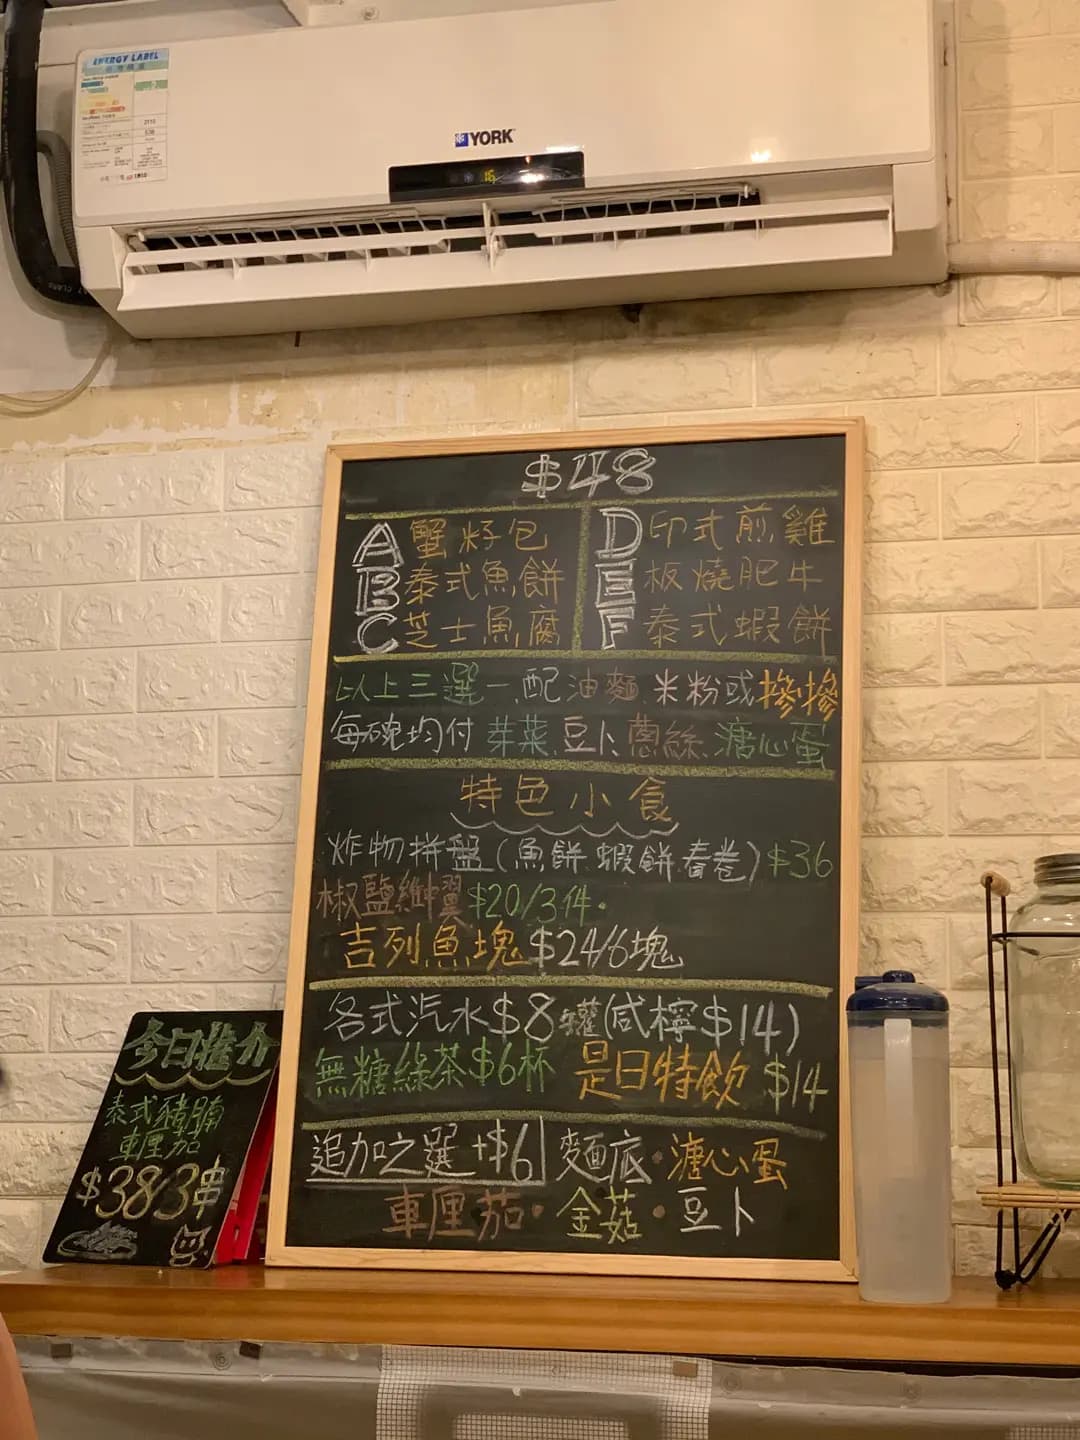 ENERGY LABEL
YORK
16
$48
A 蟹籽包
B 泰式魚餅
C 芝士魚腐
D 印式煎雞
E 板燒肥牛
F 泰式蝦餅
以上三選一.配油麵.米粉或摻摻
每碗均付 芽菜.豆卜.蔥絲.溏心蛋
特色小食
炸物拼盤(魚餅.蝦餅.春卷) $36
椒鹽雞中翼 $20/3件.
吉列魚塊 $24/6塊
各式汽水 $8罐(咸檸$14)
無糖綠茶 $6杯 是日特飲 $14
追加之選 +$6 麵底·溏心蛋
車厘茄·金菇·豆卜
今日推介
泰式豬腩
車厘茄
$38/3串